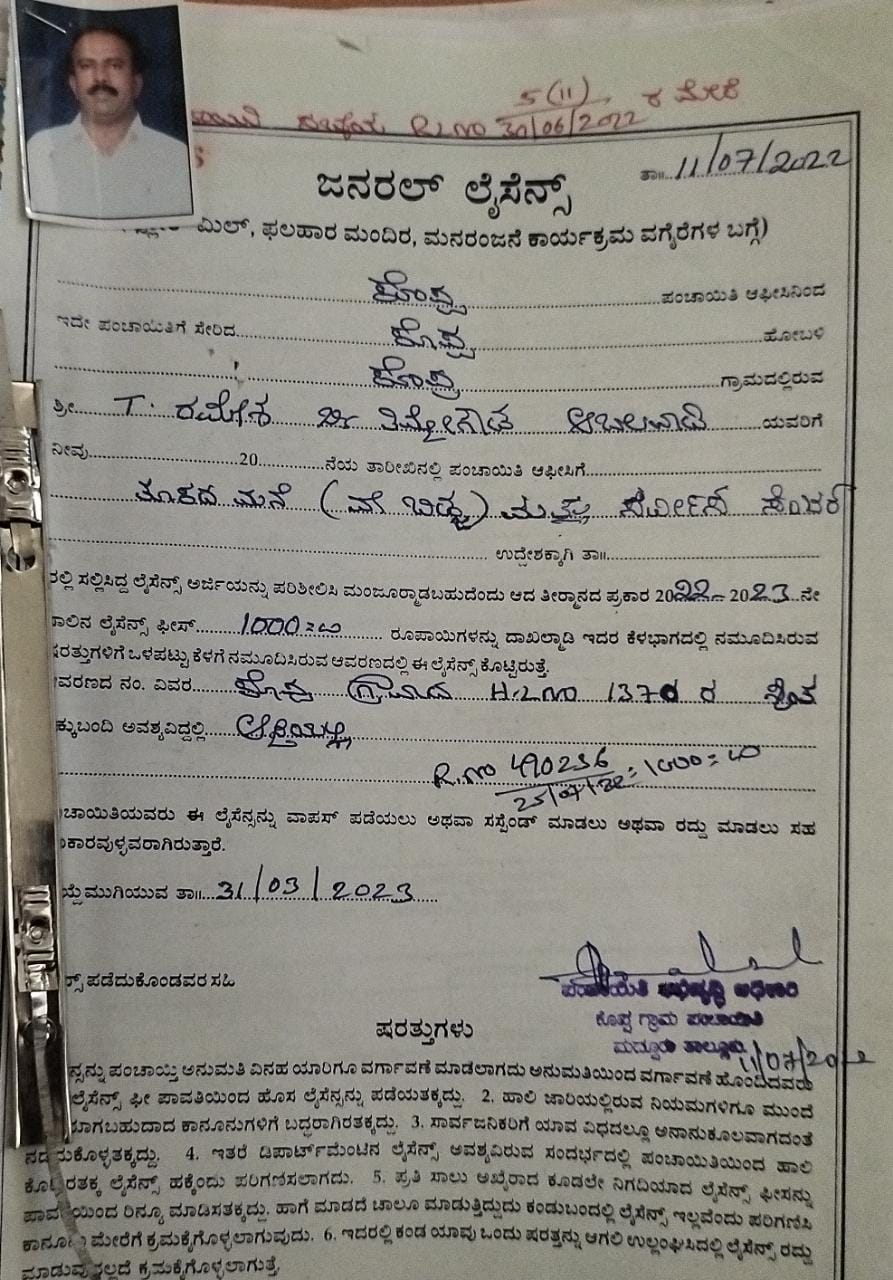 5(11)
R.NO 30/06/2022 ರ ಮೇರೆ
ತಾ॥ 11/07/2022
ಜನರಲ್ ಲೈಸೆನ್ಸ್
ಮಿಲ್, ಫಲಹಾರ ಮಂದಿರ, ಮನರಂಜನೆ ಕಾರ್ಯಕ್ರಮ ವಗೈರೆಗಳ ಬಗ್ಗೆ)
ಕೊಪ್ಪ ಪಂಚಾಯಿತಿ ಆಫೀಸಿನಿಂದ
ಇದೇ ಪಂಚಾಯಿತಿಗೆ ಸೇರಿದ ಕೊಪ್ಪ ಹೋಬಳಿ
ಕೊಪ್ಪ ಗ್ರಾಮದಲ್ಲಿರುವ
ಶ್ರೀ T. ರಮೇಶ ಬಿನ್ ತಿಮ್ಮೇಗೌಡ ಆಬಲವಾಡಿ ಯವರಿಗೆ
ನೀವು 20 ನೆಯ ತಾರೀಖಿನಲ್ಲಿ ಪಂಚಾಯಿತಿ ಆಫೀಸಿಗೆ
ತೂಕದ ಮನೆ (ವೇ ಬ್ರಿಡ್ಜ್) ಮತ್ತು ಸರ್ವೀಸ್ ಸೆಂಟರ್
ಉದ್ದೇಶಕ್ಕಾಗಿ ತಾ॥
ರಲ್ಲಿ ಸಲ್ಲಿಸಿದ್ದ ಲೈಸೆನ್ಸ್ ಅರ್ಜಿಯನ್ನು ಪರಿಶೀಲಿಸಿ ಮಂಜೂರ್ಮಾಡಬಹುದೆಂದು ಆದ ತೀರ್ಮಾನದ ಪ್ರಕಾರ 2022-2023 ನೇ
ಸಾಲಿನ ಲೈಸೆನ್ಸ್ ಫೀಸ್ 1000=00 ರೂಪಾಯಿಗಳನ್ನು ದಾಖಲ್ಮಾಡಿ ಇದರ ಕೆಳಭಾಗದಲ್ಲಿ ನಮೂದಿಸಿರುವ
ಷರತ್ತುಗಳಿಗೆ ಒಳಪಟ್ಟು ಕೆಳಗೆ ನಮೂದಿಸಿರುವ ಆವರಣದಲ್ಲಿ ಈ ಲೈಸೆನ್ಸ್ ಕೊಟ್ಟಿರುತ್ತೆ.
ವರಣದ ನಂ. ವಿವರ ಕೊಪ್ಪ ಗ್ರಾಮದ H.L.NO 1370 ರ ಸ್ವಂತ
ಕ್ಕುಬಂದಿ ಅವಶ್ಯವಿದ್ದಲ್ಲಿ
R.NO 490236 = 1000=00
25/07/22
ಚಾಯಿತಿಯವರು ಈ ಲೈಸೆನ್ಸನ್ನು ವಾಪಸ್ ಪಡೆಯಲು ಅಥವಾ ಸಸ್ಪೆಂಡ್ ಮಾಡಲು ಅಥವಾ ರದ್ದು ಮಾಡಲು ಸಹ
ಕಾರವುಳ್ಳವರಾಗಿರುತ್ತಾರೆ.
ಯ್ದೆಮುಗಿಯುವ ತಾ॥ 31/03/2023
ನ್ಸ್ ಪಡೆದುಕೊಂಡವರ ಸಹಿ
ಪಂಚಾಯಿತಿ ಅಭಿವೃದ್ಧಿ ಅಧಿಕಾರಿ
ಕೊಪ್ಪ ಗ್ರಾಮ ಪಂಚಾಯಿತಿ
ಮದ್ದೂರು ತಾಲ್ಲೂಕು
11/07/2022
ಷರತ್ತುಗಳು
ನ್ಸನ್ನು ಪಂಚಾಯ್ತಿ ಅನುಮತಿ ವಿನಹ ಯಾರಿಗೂ ವರ್ಗಾವಣೆ ಮಾಡಲಾಗದು ಅನುಮತಿಯಿಂದ ವರ್ಗಾವಣೆ ಹೊಂದಿದವರು
ಲೈಸೆನ್ಸ್ ಫೀ ಪಾವತಿಯಿಂದ ಹೊಸ ಲೈಸೆನ್ಸನ್ನು ಪಡೆಯತಕ್ಕದ್ದು. 2. ಹಾಲಿ ಜಾರಿಯಲ್ಲಿರುವ ನಿಯಮಗಳಿಗೂ ಮುಂದೆ
ಜಾಗಬಹುದಾದ ಕಾನೂನುಗಳಿಗೆ ಬದ್ಧರಾಗಿರತಕ್ಕದ್ದು. 3. ಸಾರ್ವಜನಿಕರಿಗೆ ಯಾವ ವಿಧದಲ್ಲೂ ಅನಾನುಕೂಲವಾಗದಂತೆ
ನಡೆದುಕೊಳ್ಳತಕ್ಕದ್ದು. 4. ಇತರೆ ಡಿಪಾರ್ಟ್‌ಮೆಂಟಿನ ಲೈಸೆನ್ಸ್ ಅವಶ್ಯವಿರುವ ಸಂದರ್ಭದಲ್ಲಿ ಪಂಚಾಯಿತಿಯಿಂದ ಹಾಲಿ
ಕೊಟ್ಟಿರತಕ್ಕ ಲೈಸೆನ್ಸ್ ಹಕ್ಕೆಂದು ಪರಿಗಣಿಸಲಾಗದು. 5. ಪ್ರತಿ ಸಾಲು ಅಖೈರಾದ ಕೂಡಲೇ ನಿಗದಿಯಾದ ಲೈಸೆನ್ಸ್ ಫೀಸನ್ನು
ಪಾವತಿಯಿಂದ ರಿನ್ಯೂ ಮಾಡಿಸತಕ್ಕದ್ದು. ಹಾಗೆ ಮಾಡದೆ ಚಾಲೂ ಮಾಡುತ್ತಿದ್ದುದು ಕಂಡುಬಂದಲ್ಲಿ ಲೈಸೆನ್ಸ್ ಇಲ್ಲವೆಂದು ಪರಿಗಣಿಸಿ
ಕಾನೂನು ಮೇರೆಗೆ ಕ್ರಮಕೈಗೊಳ್ಳಲಾಗುವುದು. 6. ಇದರಲ್ಲಿ ಕಂಡ ಯಾವು ಒಂದು ಷರತ್ತನ್ನು ಆಗಲಿ ಉಲ್ಲಂಘಿಸಿದಲ್ಲಿ ಲೈಸೆನ್ಸ್ ರದ್ದು
ಮಾಡುವುದಲ್ಲದೆ ಕ್ರಮಕೈಗೊಳ್ಳಲಾಗುತ್ತೆ.